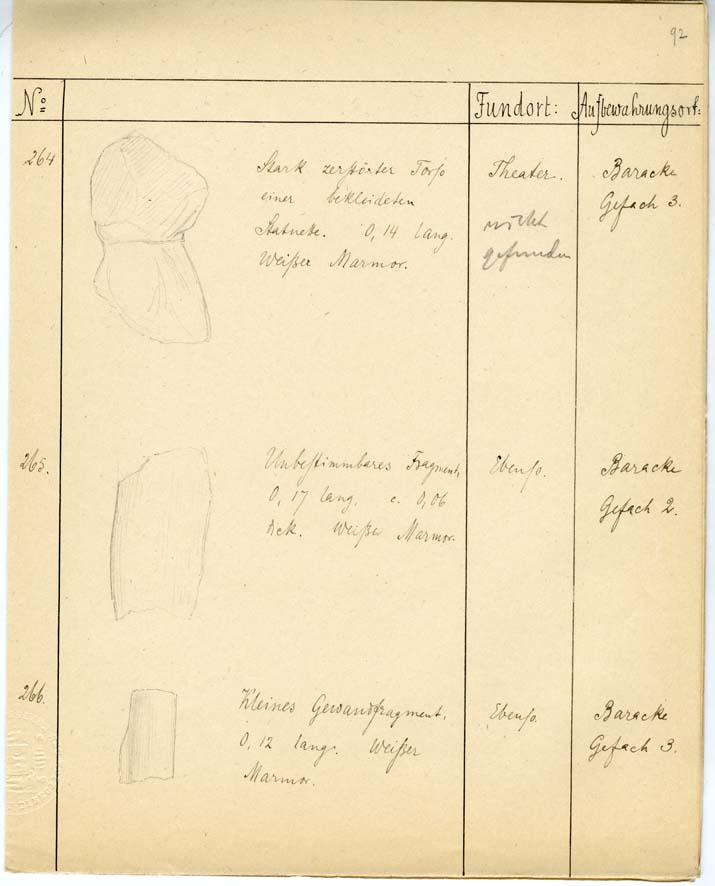 92
No Fundort: Aufbewahrungsort:
264 Stark zerstörter Torso Theater. Baracke
einer bekleideten Gefach 3.
Statuette. 0,14 lang. nicht
Weißer Marmor. gefunden
265. Unbestimmbares Fragment, Ebenso. Baracke
0,17 lang. c. 0,06 Gefach 2.
dick. Weißer Marmor.
266. Kleines Gewandfragment. Ebenso. Baracke
0,12 lang. Weißer Gefach 3.
Marmor.